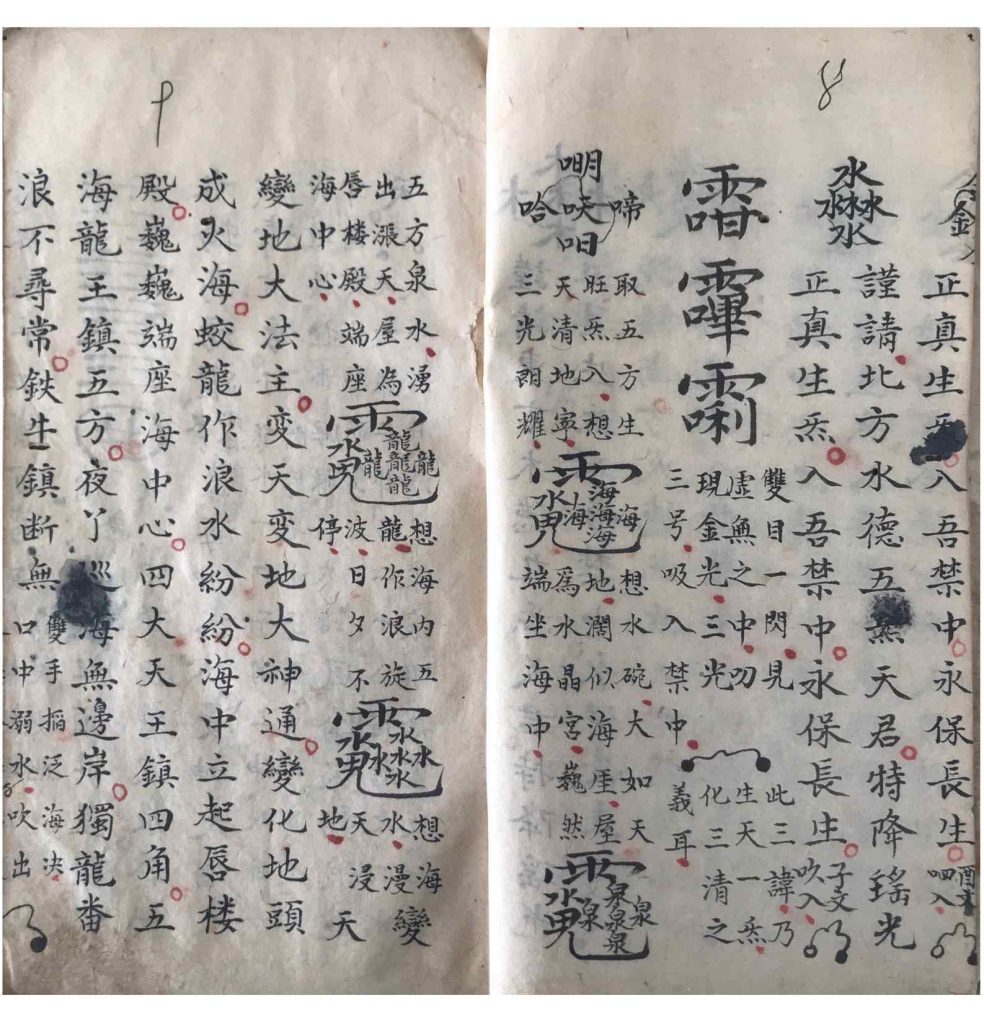 8
金
正真生炁入吾禁中永保長生
酉文
呬入
水
謹請北方水德五炁天君特降瑤光
正真生炁入吾禁中永保長生
子文
吹入
雙目一閃見
虛無之中叨
現金光三光
三号吸入禁中
此三諱乃
生天一炁
化三清之
義耳
啼
明
哈
取五方生
旺炁入想
天清地寧
三光朗耀
想水碗大如天
海地濶似海厓屋
爲水晶宮巍然
端坐海中
9
五方泉水湧
出漲天屋為
唇楼殿端座
海中心
想海内五
龍作浪旋
波日夕不
停
想海
水漫
天浸
地
變天
變地大法主变天变地大神通變化地頭
成火海蛟龍作浪水紛紛海中立起唇楼
殿巍巍端座海中心四大天王鎮四角五
海龍王鎮五方夜丫巡海無邊岸獨龍番
浪不尋常鉄牛鎮断無
雙手搯泛海決
口中溺水吹出